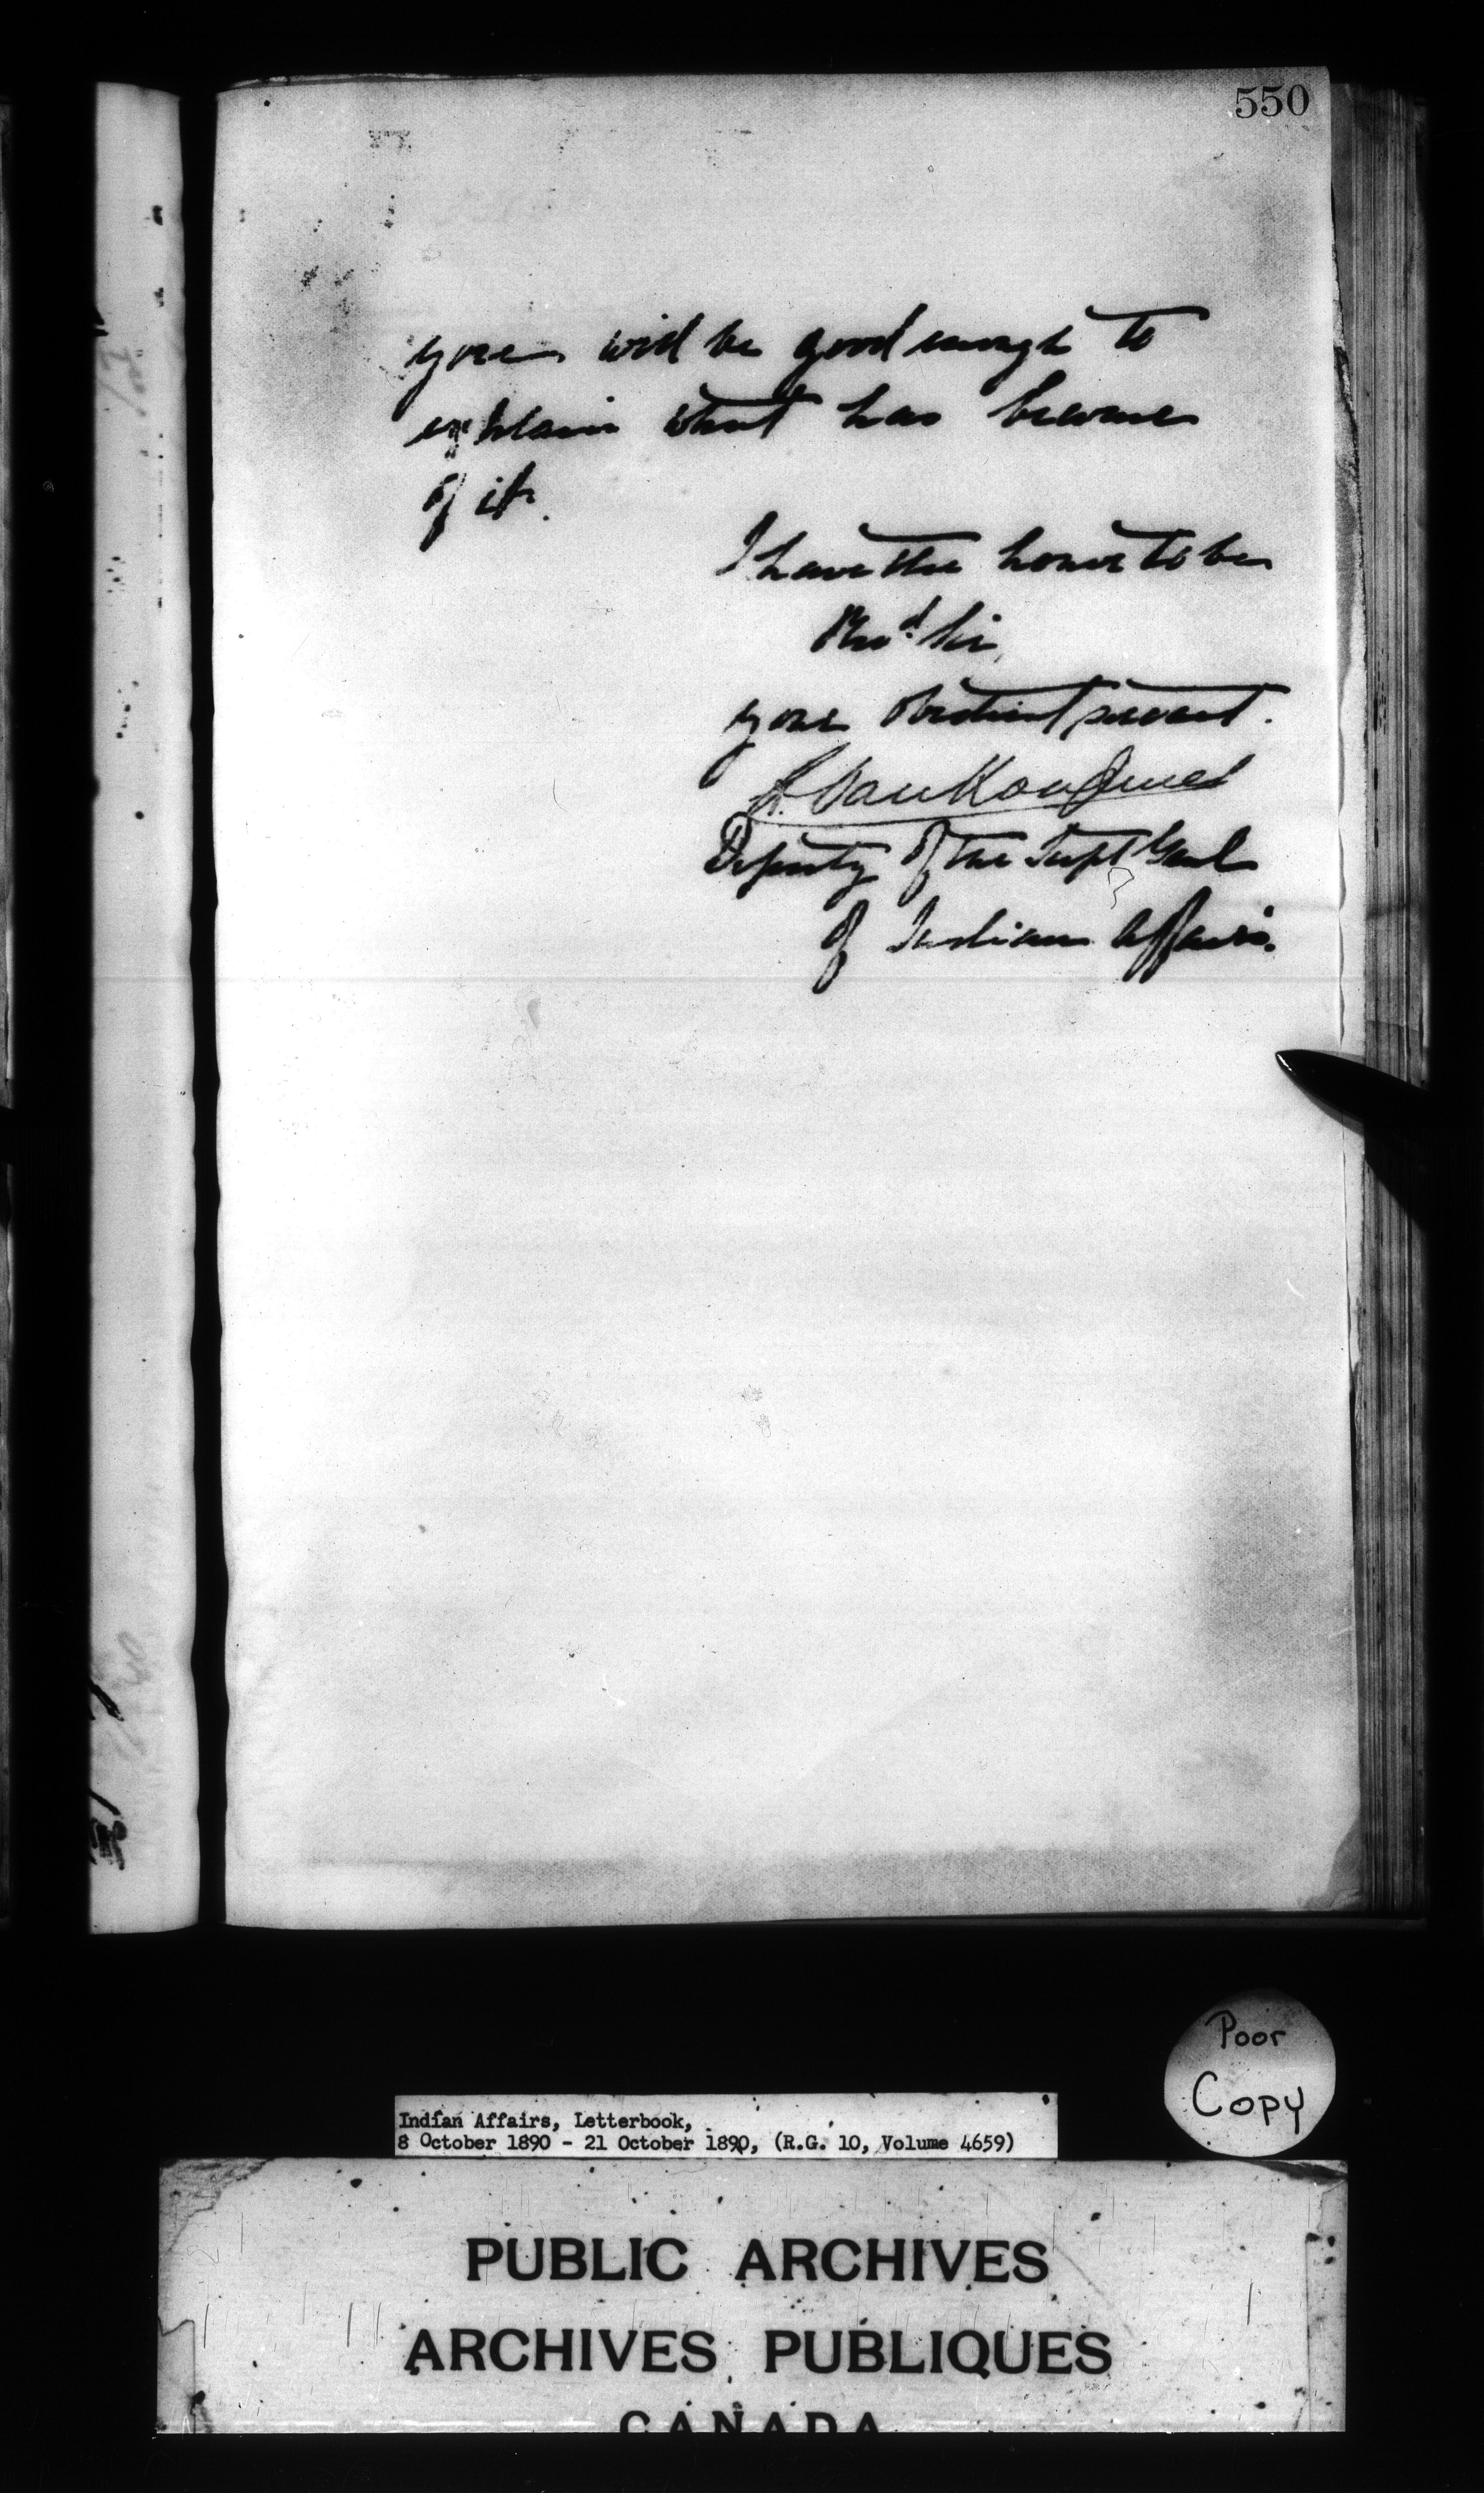 550
you will be good enough to
explain what has become
of it.
I have the honor to be
Rev<sup>d</sup> Sir,
your obedient servant.
L. VanKoughnet
Deputy of the Supt Genl
of Indian Affairs.
Poor
Copy
Indian Affairs, Letterbook,
8 October 1890 - 21 October 1890, (R.G. 10, Volume 4659)
PUBLIC ARCHIVES
ARCHIVES PUBLIQUES
CANADA